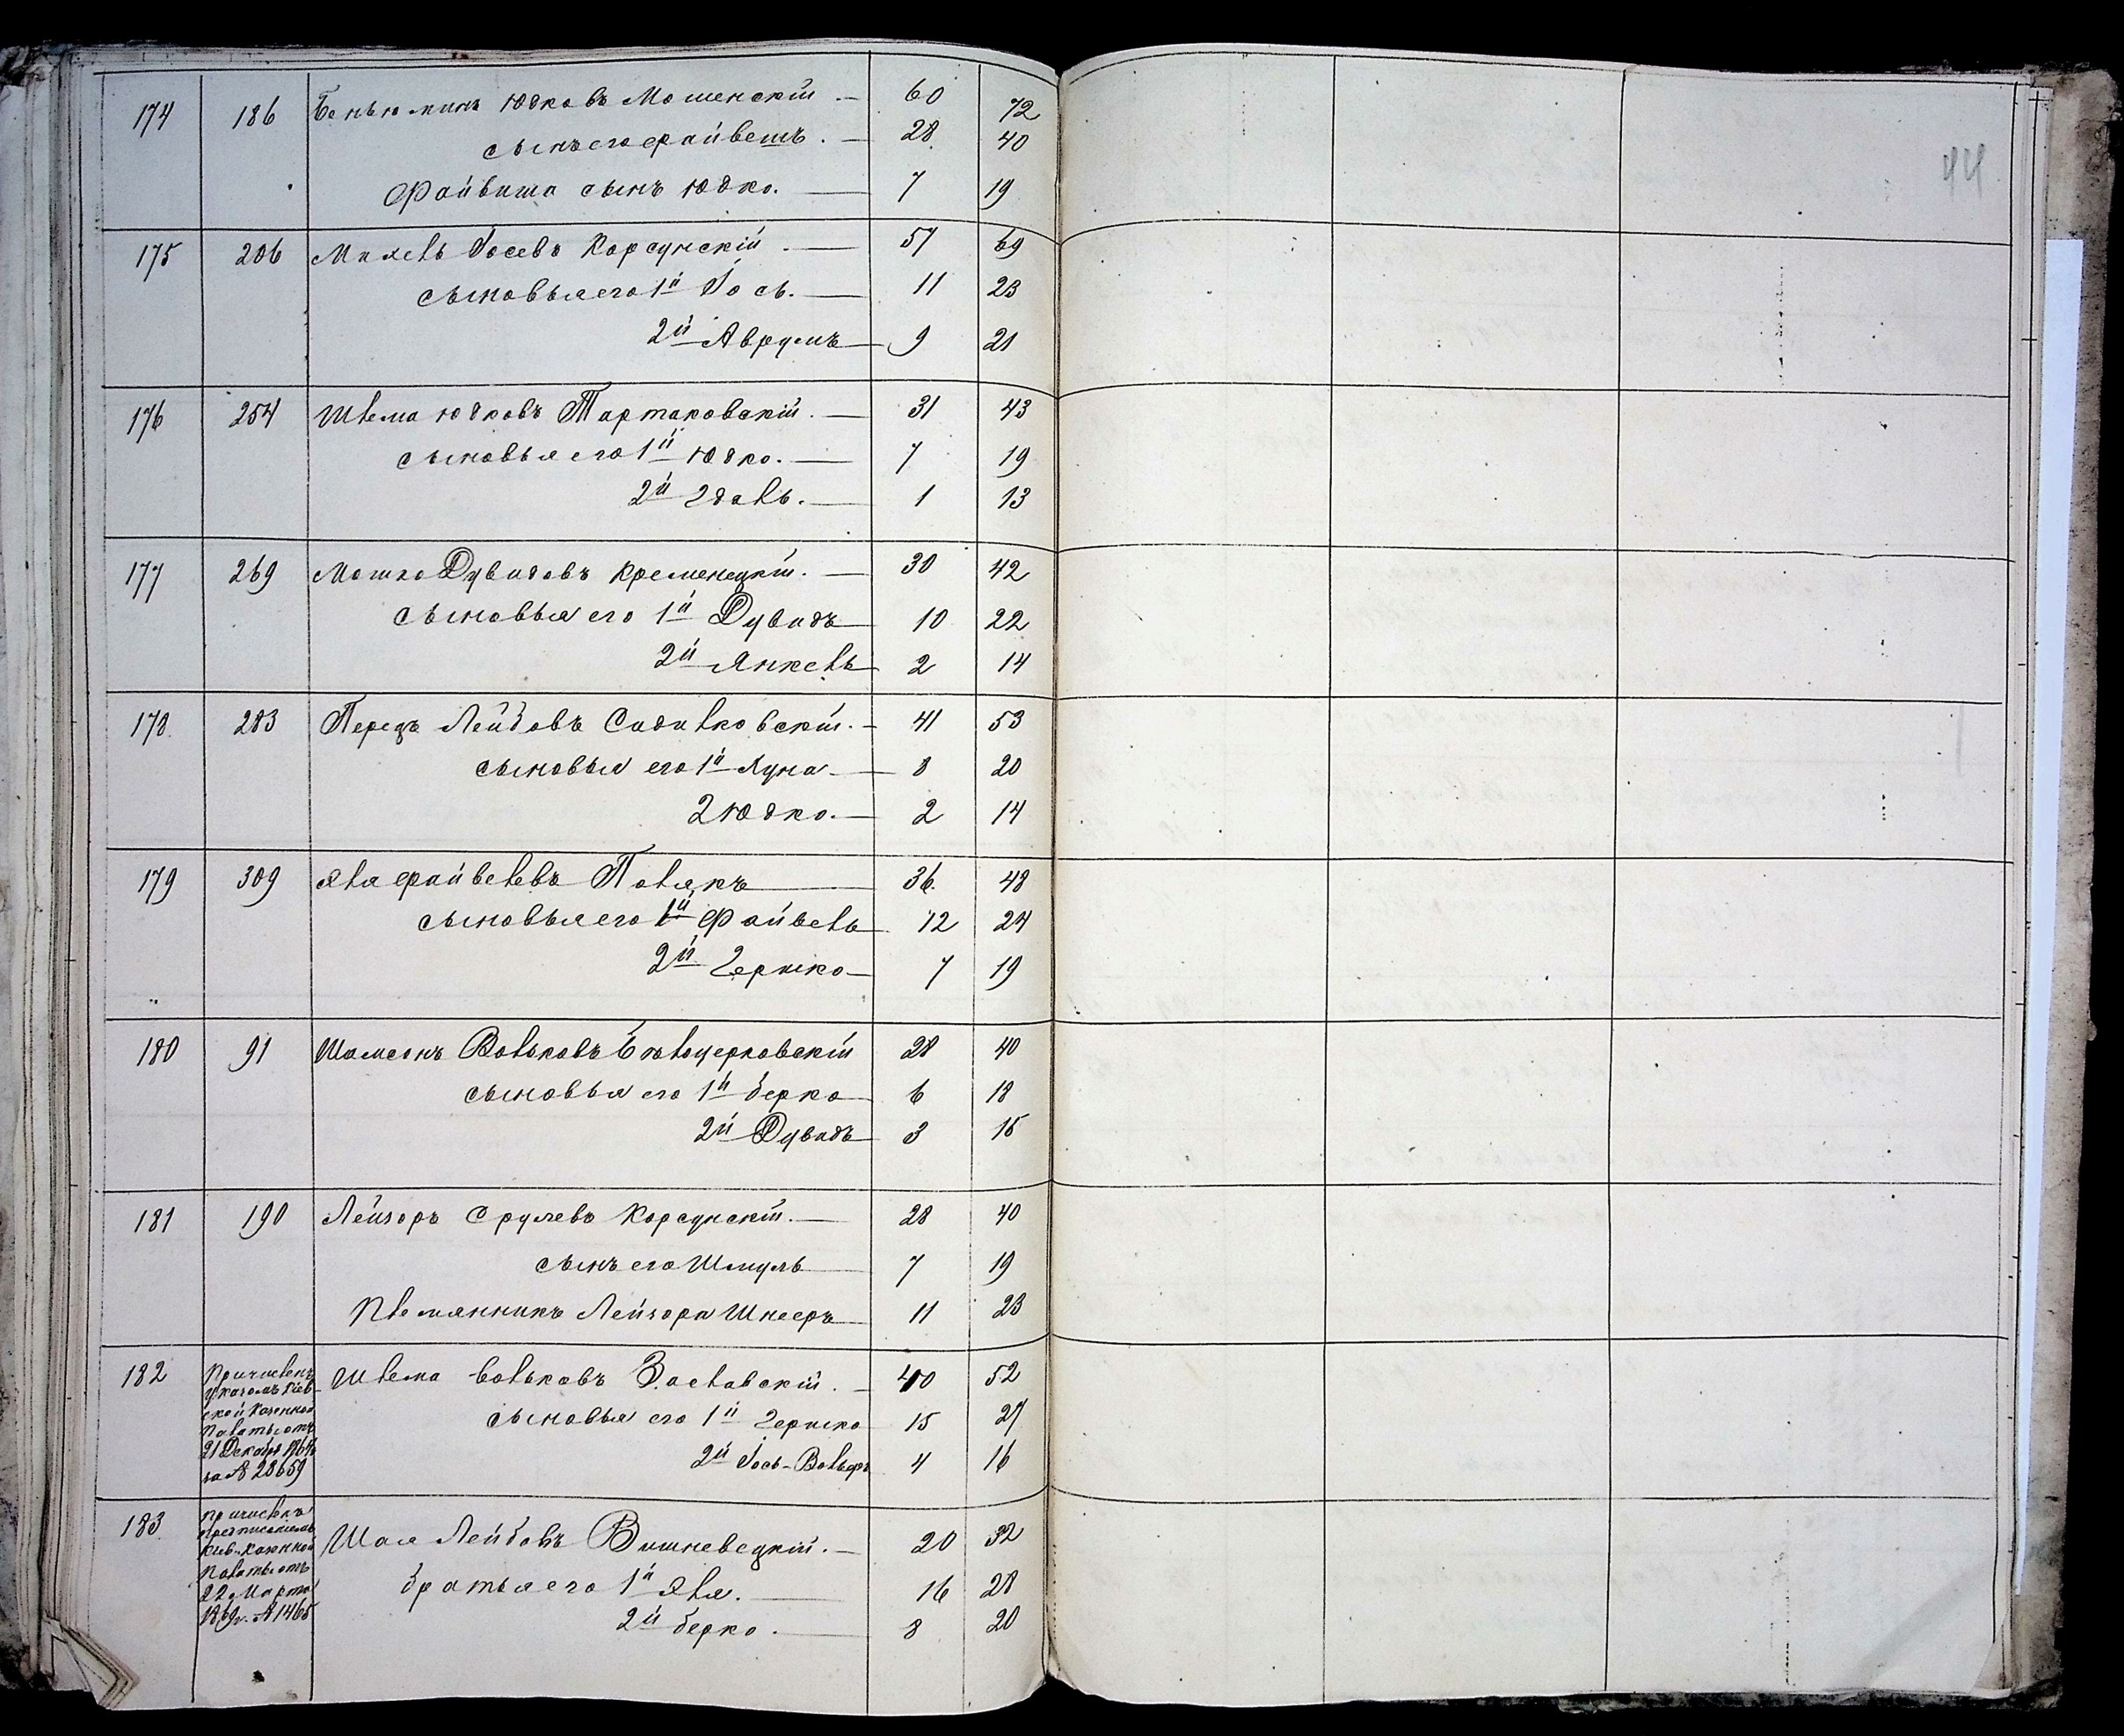 174 186 Беньюминъ Юдковъ Мошенскій. 60 72
сынъ его Файвешъ. 28 40
Файвиша сынъ Юдко. 7 19
44
175 206 Іосевъ Корсунскій. 57 69
сыновья его 1й Іось. 11 23
2й Аврумъ 9 21
176 254 Шлема Юдковъ Тартаковскій. 31 43
сыновья его 1й Юдко. 7 19
2й Гдаль. 1 13
177 269 Мошко Дувидовъ Кременецкій. 30 42
сыновья его 1й Дувидъ 10 22
2й Янкель 2 14
178 283 Перецъ Лейбовъ Садилковскій. 41 53
сыновья его 1й 8 20
2 Юдко. 2 14
179 309 Эля Файвелевъ Полякъ 36. 48
сыновья его 1й Файвель 12 24
2й Гершко 7 19
180 91 Шамсонъ Вольковъ Бѣлоцерковскій 28 40
сыновья его 1й Берко 6 18
2й Дувидъ 3 15
181 190 Лейзоръ Срулевъ Корсунскій. 28 40
сынъ его Шмуль 7 19
племянникъ Лейзора Шнееръ 11 23
182 Шлема Вольковъ Заславскій. 40 52
сыновья его 1й Гершко 15 27
2й Іось-Вольфъ 4 16
Причисленъ
указомъ Кіев-
ской Казенной
Палаты отъ
21 Декабря
за № 28659
183 Шая Лейбовъ Вишневецкій. 20 32
братья его 1й Эля. 16 28
2й Берко. 8 20
причисленъ
предписаніемъ
Кіев. Казенной
Палаты отъ
22 Марта
1869г. № 1465